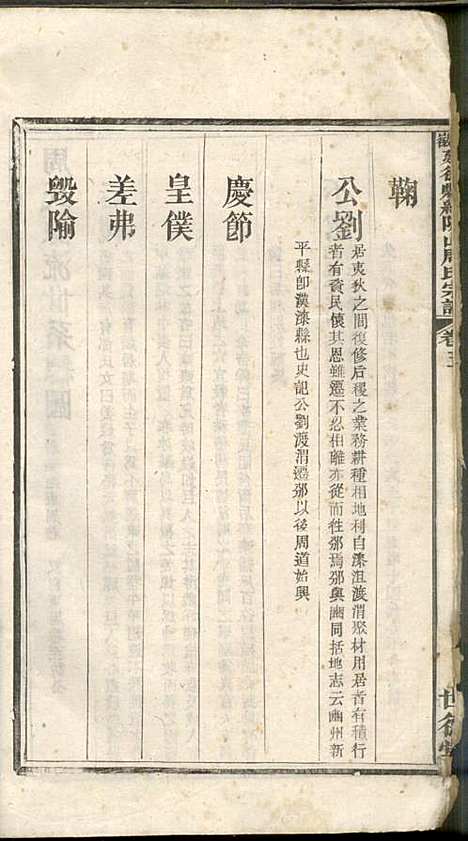 鞠
公劉
居夷狄之間復修后稷之業務耕種相地利自漆沮渡渭聚材用居者有積行
者有資民懷其恩雖遷不忍相離亦從而徃邠焉邠與豳同括地志云豳州新
平縣卽漢漆縣也史記公劉渡渭遷邠以後周道始興
慶節
皇僕
差弗
毀隃